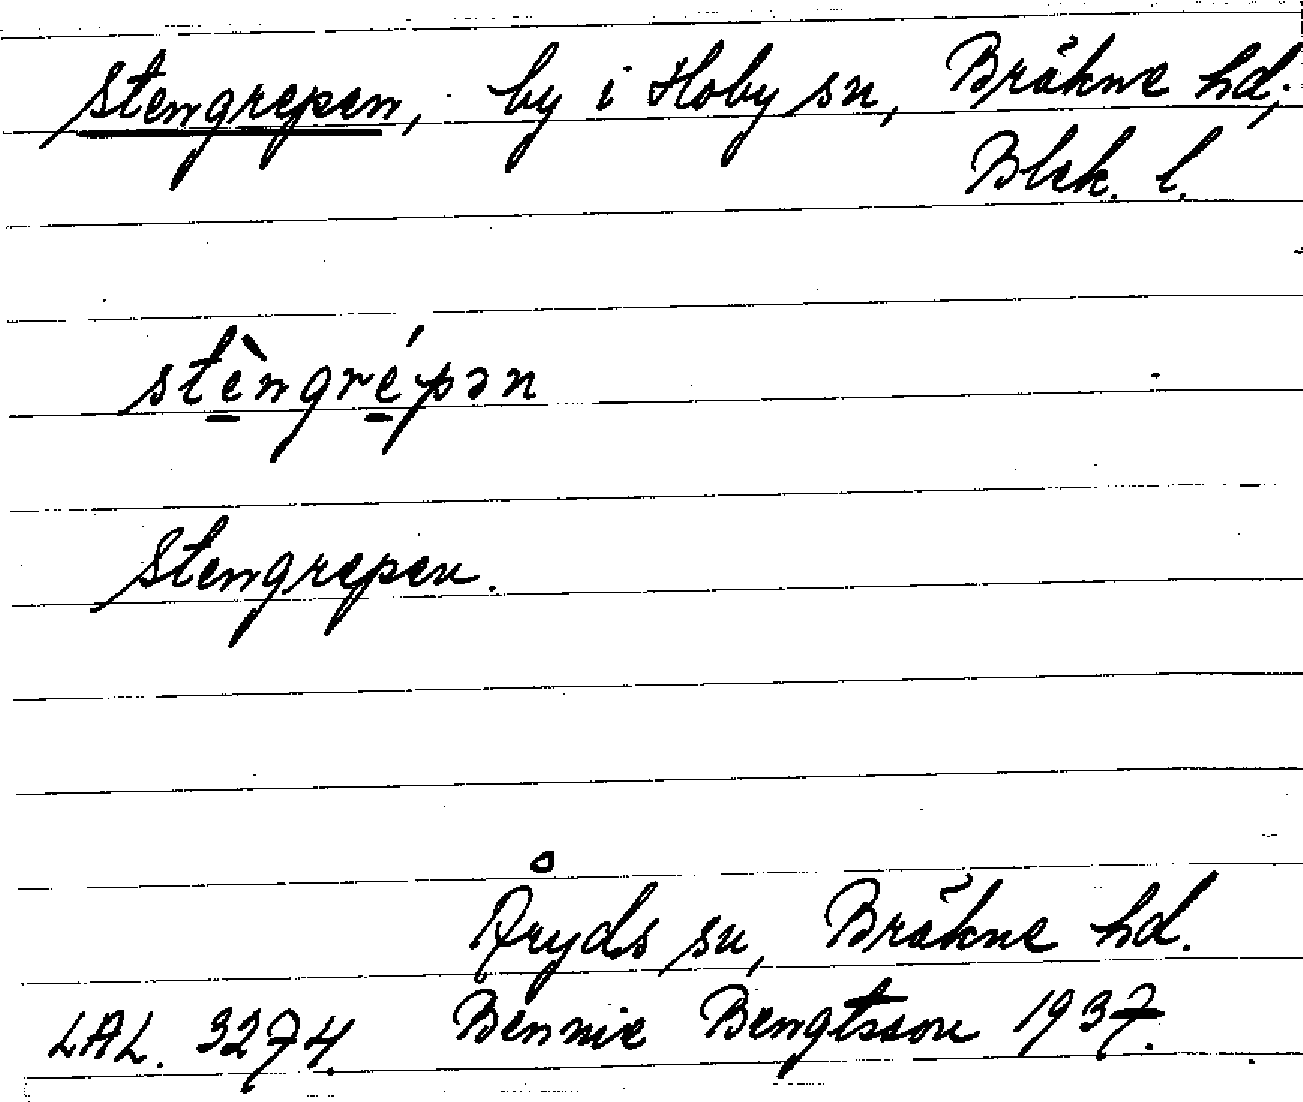 Stengrepen, by i Hoby sn, Bräkne hd,
Blek. l.
stè̱ngré̱pən
Stengrepen.
Åryds sn, Bräkne hd.
LAL. 3274. Bennie Bengtsson 1937.